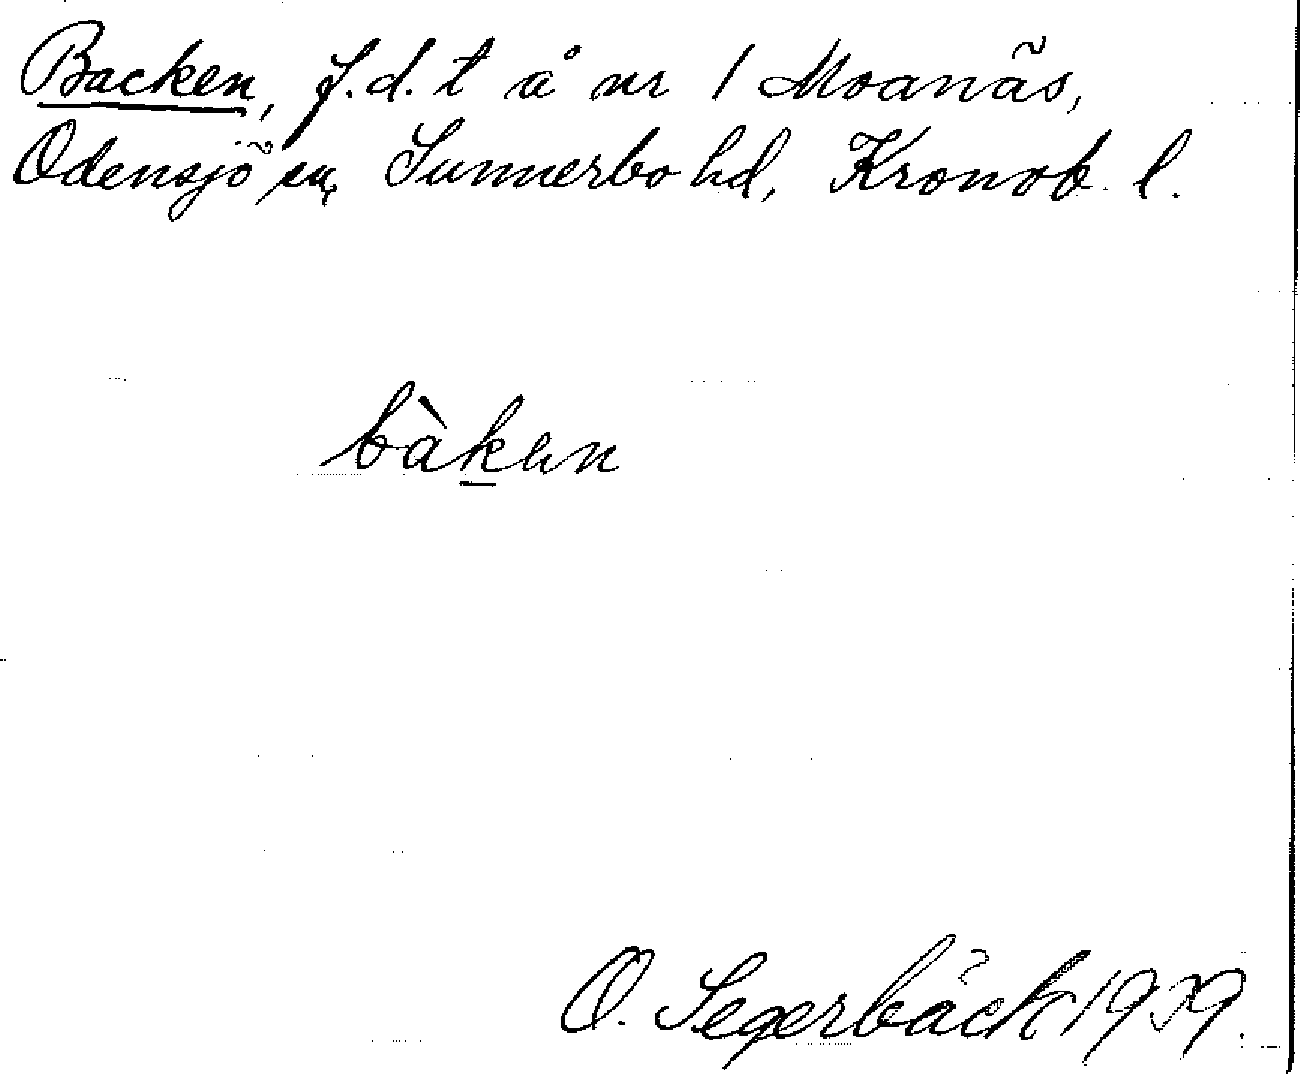 Backen, f.d. t å nr 1 Moanäs,
Odensjö sn, Sunnerbo hd, Kronob. l.
bàkən
O. Segerbäck 1929.